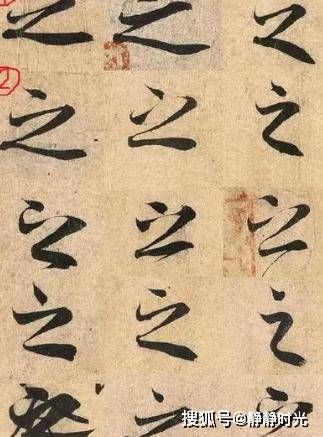 之 之 之
② 之 之 之
之 之 之
之 之 之
之
搜狐号@静静时光